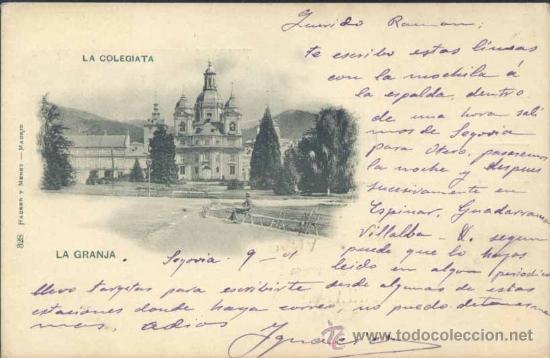 LA COLEGIATA
Querido Ramon:
te escribo estas lineas
con la mochila á
la espalda, dentro
de una hora sali
mos de Segovia
para Otero, pasaremos
la noche y despues
sucesivamente en
Espinar, Guadarrama
Villalba segun
puede que lo hayas
leido en algun periodico
LA GRANJA
Segovia 9-01
llevo tarjetas para escribirte desde algunas de estas
estaciones donde haya correo, no puedo detenerme
mas, adios Ignacio
328 HAUSER Y MENET.—MADRID
TC www.todocoleccion.net